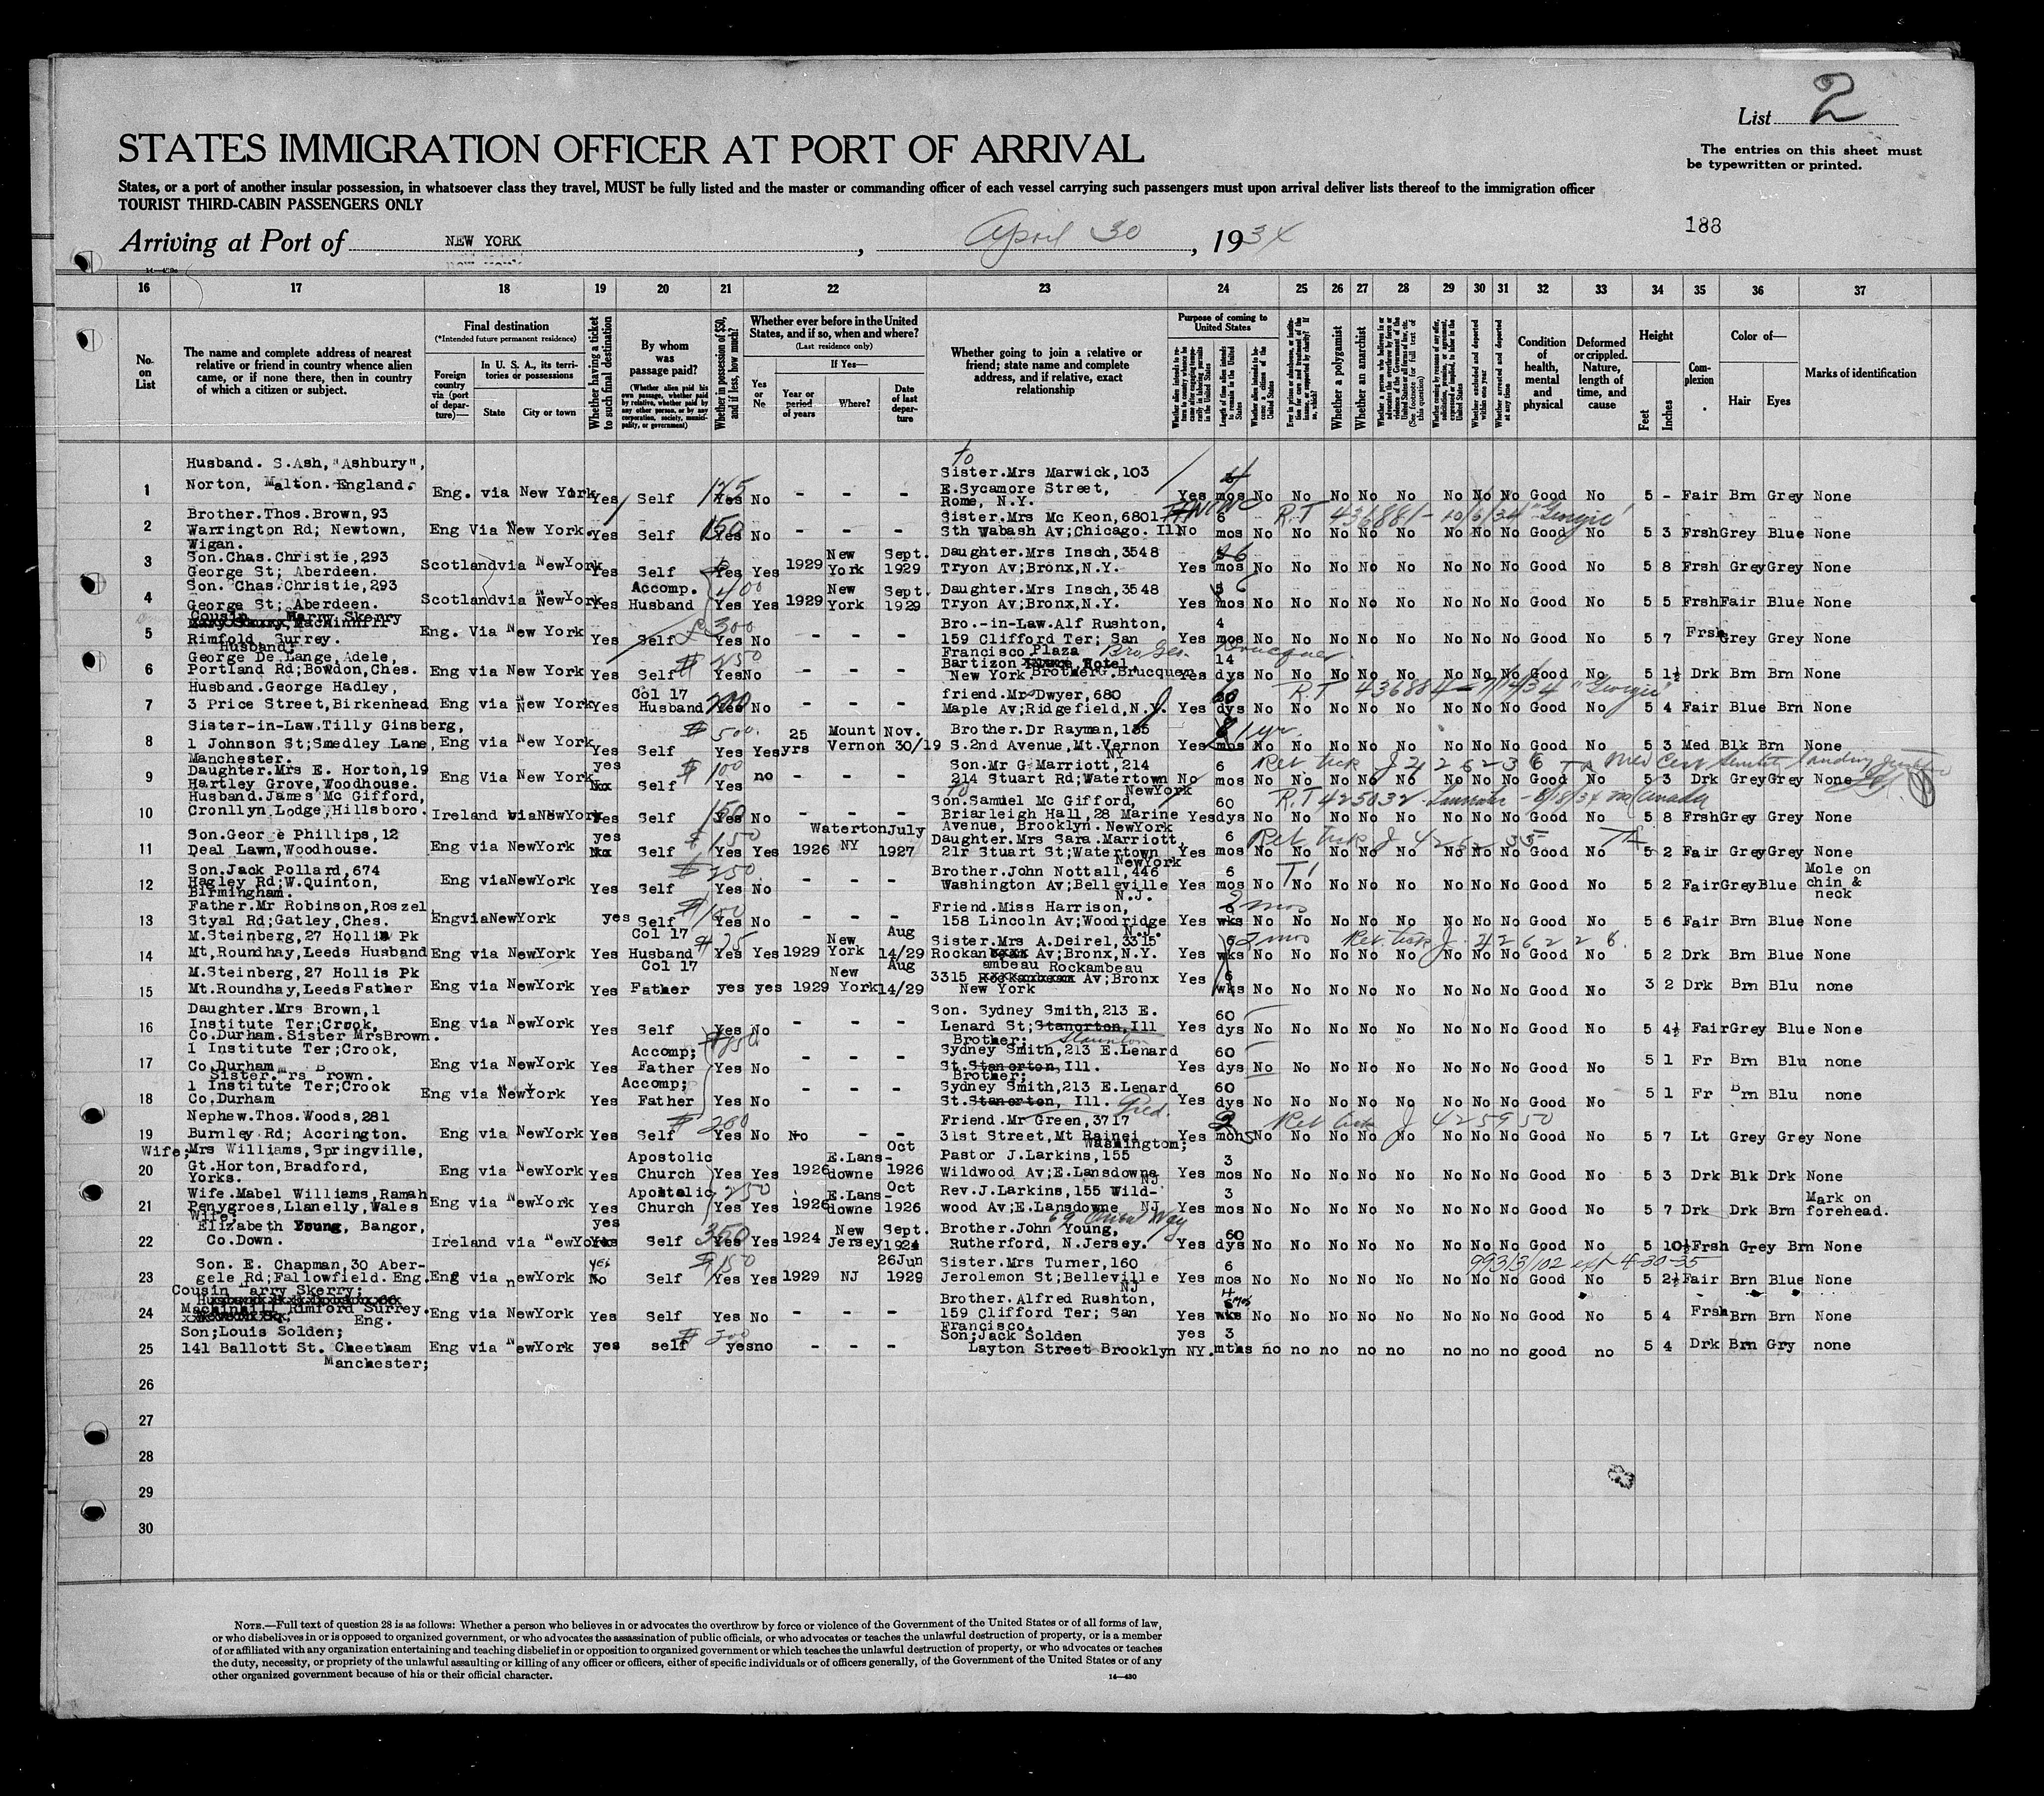 List 2
STATES IMMIGRATION OFFICER AT PORT OF ARRIVAL
The entries on this sheet must
be typewritten or printed.
States, or a port of another insular possession, in whatsoever class they travel, MUST be fully listed and the master or commanding officer of each vessel carrying such passengers must upon arrival deliver lists thereof to the immigration officer
TOURIST THIRD-CABIN PASSENGERS ONLY
188
Arriving at Port of NEW YORK, April 30, 1934
16 17 18 19 20 21 22 23 24 25 26 27 28 29 30 31 32 33 34 35 36 37
No. on List
The name and complete address of nearest relative or friend in country whence alien came, or if none there, then in country of which a citizen or subject.
Final destination
(*Intended future permanent residence)
Foreign country via (port of departure)—
In U. S. A., its territories or possessions
State
City or town
Whether having a ticket to such final destination
By whom was passage paid?
(Whether alien paid his own passage, whether paid by relative, whether paid by any other person, or by any corporation, society, municipality, or government)
Whether in possession of $50, and if less, how much?
Whether ever before in the United States, and if so, when and where?
(Last residence only)
Yes or No
If Yes—
Year or period of years
Where?
Date of last departure
Whether going to join a relative or friend; state name and complete address, and if relative, exact relationship
Purpose of coming to United States
Whether a polygamist
Whether an anarchist
Condition of health, mental and physical
Deformed or crippled. Nature, length of time, and cause
Height
Feet
Inches
Complexion
Color of—
Hair
Eyes
Marks of identification
1 Husband. S.Ash, "Ashbury", Norton, Malton. England. Eng. via New York Yes Self 175 Yes No - - - to Sister.Mrs Marwick, 103 E.Sycamore Street, Rome, N.Y. Yes 4 mos No No No No No No No No Good No 5 - Fair Brn Grey None
2 Brother.Thos.Brown, 93 Warrington Rd; Newtown, Wigan. Eng Via New York. Yes Self 150 Yes No - - - Sister.Mrs Mc Keon, 6801 Sth Wabash Av;Chicago. Ill No 6 mos No No No No No No No No Good No 5 3 Frsh Grey Blue None
R.T 436881 - 10/6/34 "Georgic"
3 Son.Chas.Christie, 293 George St; Aberdeen. Scotland via New York Yes Self Yes Yes 1929 New York Sept. 1929 Daughter.Mrs Insch, 3548 Tryon Av;Bronx, N.Y. Yes 6 mos No No No No No No No No Good No 5 8 Frsh Grey Grey None
4 Son. Chas.Christie, 293 George St; Aberdeen. Scotland via New York Yes Accomp. Husband 400 Yes Yes 1929 New York Sept. 1929 Daughter.Mrs Insch, 3548 Tryon Av;Bronx, N.Y. Yes 6 mos No No No No No No No No Good No 5 5 Frsh Fair Blue None
5 Cousin Harry Skerry Rimfold, Surrey. Eng. Via New York Yes Self £300 Yes No - - - Bro.-in-Law.Alf Rushton, 159 Clifford Ter; San Francisco Yes 4 mos No No No No No No No No Good No 5 7 Frsh Grey Grey None
6 Husband; George De Lange, Adele, Portland Rd;Bowdon, Ches. Eng via New York Yes Self $250 Yes No - - - Plaza Bartizon Hotel, New York Brother G.Brucquer Yes 14 dys No No No No No No No No Good No 5 1½ Drk Brn Brn None
7 Husband.George Hadley, 3 Price Street, Birkenhead Eng via New York Yes Col 17 Husband 200 Yes No - - - friend.Mr Dwyer, 680 Maple Av;Ridgefield, N.Y. Yes 60 dys No No No No No No No No Good No 5 4 Fair Blue Brn None
R.T 436884 - 7/14/34 "Georgic"
8 Sister-in-Law. Tilly Ginsberg, 1 Johnson St;Smedley Lane, Manchester. Eng via New York Yes Self $500 Yes Yes 25 yrs Mount Vernon Nov. 30/19 Brother.Dr Rayman, 135 S.2nd Avenue, Mt.Vernon NY Yes 1 yr. mos No No No No No No No No Good No 5 3 Med Blk Brn None
9 Daughter.Mrs E. Horton, 19 Hartley Grove, Woodhouse. Eng Via New York yes Self $100 Yes no Son.Mr G Marriott, 214 214 Stuart Rd;Watertown NewYork No 6 mos No No No No No No No No Good No 5 3 Drk Grey Grey None
10 Husband.James Mc Gifford, Cronllyn Lodge, Hillsboro. Ireland via NewYork Yes Self 150 Yes No - - - to Son.Samuel Mc Gifford, Briarleigh Hall, 28 Marine Avenue, Brooklyn. NewYork Yes 60 dys No No No No No No No No Good No 5 8 Frsh Grey Grey None
R.T 425032 Lancastria - 8/18/34 Canada
11 Son.George Phillips, 12 Deal Lawn, Woodhouse. Eng via NewYork yes Self $150 Yes Yes 1926 Waterton NY July 1927 Daughter.Mrs Sara.Marriott, 21r Stuart St;Watertown NewYork Yes 6 mos No No No No No No No No Good No 5 2 Fair Grey Grey None
12 Son.Jack Pollard, 674 Hagley Rd;W.Quinton, Birmingham. Eng via NewYork Yes Self $250 Yes No - - - Brother.John Nottall, 446 Washington Av;Belleville N.J. Yes 6 mos No No No No No No No No Good No 5 2 Fair Grey Blue Mole on chin & neck
13 Father.Mr Robinson, Roszel Styal Rd;Gatley, Ches. Eng via NewYork yes Self $100 Yes No - - - Friend.Miss Harrison, 158 Lincoln Av;Woodridge N.J. Yes 2 mos wks No No No No No No No No Good No 5 6 Fair Brn Blue None
14 M.Steinberg, 27 Hollis Pk Mt, Roundhay, Leeds Husband Eng via NewYork Yes Col 17 Husband $75 Yes Yes 1929 New York Aug 14/29 Sister.Mrs A.Deirel, 3315 Rockambeau Av;Bronx, N.Y. Yes 6 wks 2 mos No No No No No No No No Good No 5 2 Drk Brn Blue None
15 M.Steinberg, 27 Hollis Pk Mt.Roundhay, Leeds Father Eng via NewYork Yes Col 17 Father yes yes 1929 New York Aug 14/29 3315 Rockambeau Av;Bronx New York Yes 6 wks No No No No No No No No Good No 3 2 Drk Brn Blu none
16 Daughter.Mrs Brown, 1 Institute Ter;Crook, Co.Durham. Eng via NewYork Yes Self Yes No - - - Son. Sydney Smith, 213 E. Lenard St;Stanorton, Ill Staunton Yes 60 dys No No No No No No No No Good No 5 4½ Fair Grey Blue None
17 Sister MrsBrown. 1 Institute Ter;Crook, Co.Durham Eng via NewYork Yes Accomp; Father $850 Yes No - - - Brother; Sydney Smith, 213 E.Lenard St.Stanorton, Ill. Yes 60 dys No No No No No No No No Good No 5 1 Fr Brn Blu none
18 Sister.Mrs Brown. 1 Institute Ter;Crook Co.Durham Eng via NewYork Yes Accomp; Father Yes No - - - Brother; Sydney Smith, 213 E.Lenard St.Stanorton, Ill. Yes 60 dys No No No No No No No No Good No 5 1 Fr Brn Blu none
19 Nephew.Thos.Woods, 281 Burnley Rd; Accrington. Eng via NewYork Yes Self $200 Yes No No - - Friend.Mr Green, 3717 31st Street, Mt Rainei Washington; Yes mohs No No No No No No No No Good No 5 7 Lt Grey Grey None
Ret tick J 425950
20 Wife;Mrs Williams, Springville, Gt.Horton, Bradford, Yorks. Eng via NewYork Yes Apostolic Church Yes Yes 1926 E.Lansdowne Oct 1926 Pastor J.Larkins, 155 Wildwood Av;E.Lansdowne NJ Yes 3 mos No No No No No No No No Good No 5 3 Drk Blk Drk None
21 Wife.Mabel Williams, Ramah, Penygroes, Llanelly, Wales Eng via NewYork Yes Apostolic Church 250 Yes Yes 1926 E.Lansdowne Oct 1926 Rev.J.Larkins, 155 Wildwood Av;E.Lansdowne NJ Yes 3 mos No No No No No No No No Good No 5 7 Drk Drk Brn Mark on forehead.
22 Wife; Elizabeth Young, Bangor, Co.Down. Ireland via NewYork yes Self 350 Yes Yes 1924 New Jersey Sept. 1924 Brother.John Young, Rutherford, N.Jersey. Yes 60 dys No No No No No No No No Good No 5 10½ Frsh Grey Brn None
23 Son. E. Chapman, 30 Abergele Rd;Fallowfield. Eng. Eng via newYork yes No Self $150 Yes Yes 1929 NJ 26Jun 1929 Sister.Mrs Turner, 160 Jerolemon St;Belleville NJ Yes 6 mos No No No No No No No No Good No 5 2½ Fair Brn Blue None
99313/102 ext 4-30-35
24 Cousin Harry Skerry; Rimford Surrey. Eng. Eng via NewYork Yes Self Yes No - - - Brother.Alfred Rushton, 159 Clifford Ter; San Francisco. Yes 4 mos wks No No No No No No No No Good No 5 4 Frsh Brn Brn None
25 Son;Louis Solden; 141 Ballott St. Cheetham Manchester; Eng via NewYork yes self $200 yes no - - - Son;Jack Solden Layton Street Brooklyn NY. yes 3 mths no no no no no no no no good no 5 4 Drk Brn Gry none
26
27
28
29
30
NOTE.—Full text of question 28 is as follows: Whether a person who believes in or advocates the overthrow by force or violence of the Government of the United States or of all forms of law,
or who disbelieves in or is opposed to organized government, or who advocates the assassination of public officials, or who advocates or teaches the unlawful destruction of property, or is a member
of or affiliated with any organization entertaining and teaching disbelief in or opposition to organized government or which teaches the unlawful destruction of property, or who advocates or teaches
the duty, necessity, or propriety of the unlawful assaulting or killing of any officer or officers, either of specific individuals or of officers generally, of the Government of the United States or of any
other organized government because of his or their official character.
14—430